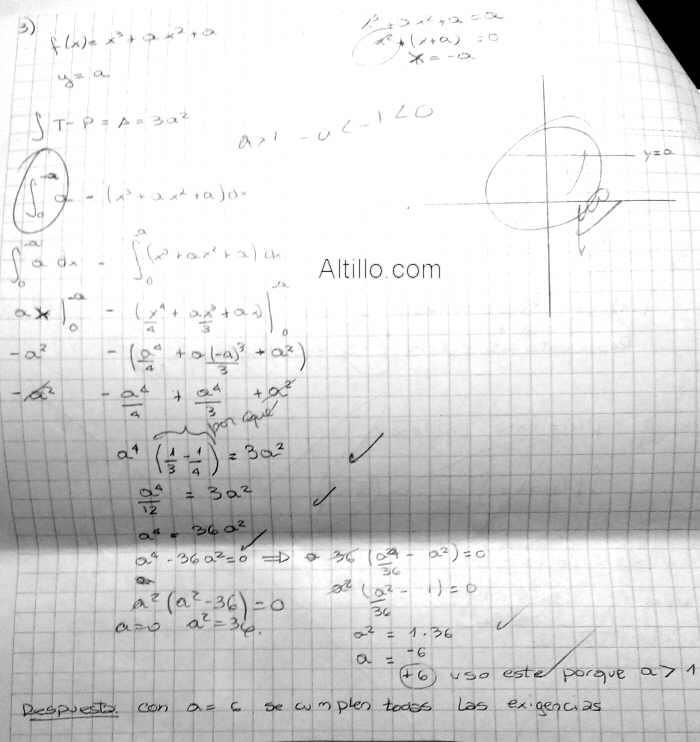 3)
f(x) = x³ + a x² + a
y = a
x³ + ax² + a = a
x² + (x+a) = 0
x = -a
∫ T - P = A = 3a²
a > 1 -a < -1 < 0
y = a
∫₀^-a a - (x³ + a x² + a) dx
∫₀^-a a dx - ∫₀^-a (x³ + ax² + a) dx
Altillo.com
ax |₀^-a - (x⁴/4 + ax³/3 + ax) |₀^-a
-a² - (a⁴/4 + a(-a)³/3 + a²)
-a² - a⁴/4 + a⁴/3 + a²
por que
a⁴ (1/3 - 1/4) = 3a²
a⁴/12 = 3a²
a⁴ = 36a²
a⁴ - 36a² = 0 ⇒ 36 (a⁴/36 - a²) = 0
a² (a²/36 - 1) = 0
a² (a² - 36) = 0
a = 0 a² = 36.
a² = 1.36
a = -6
+6 uso este porque a > 1
Respuesta con a = 6 se cumplen todas las exigencias